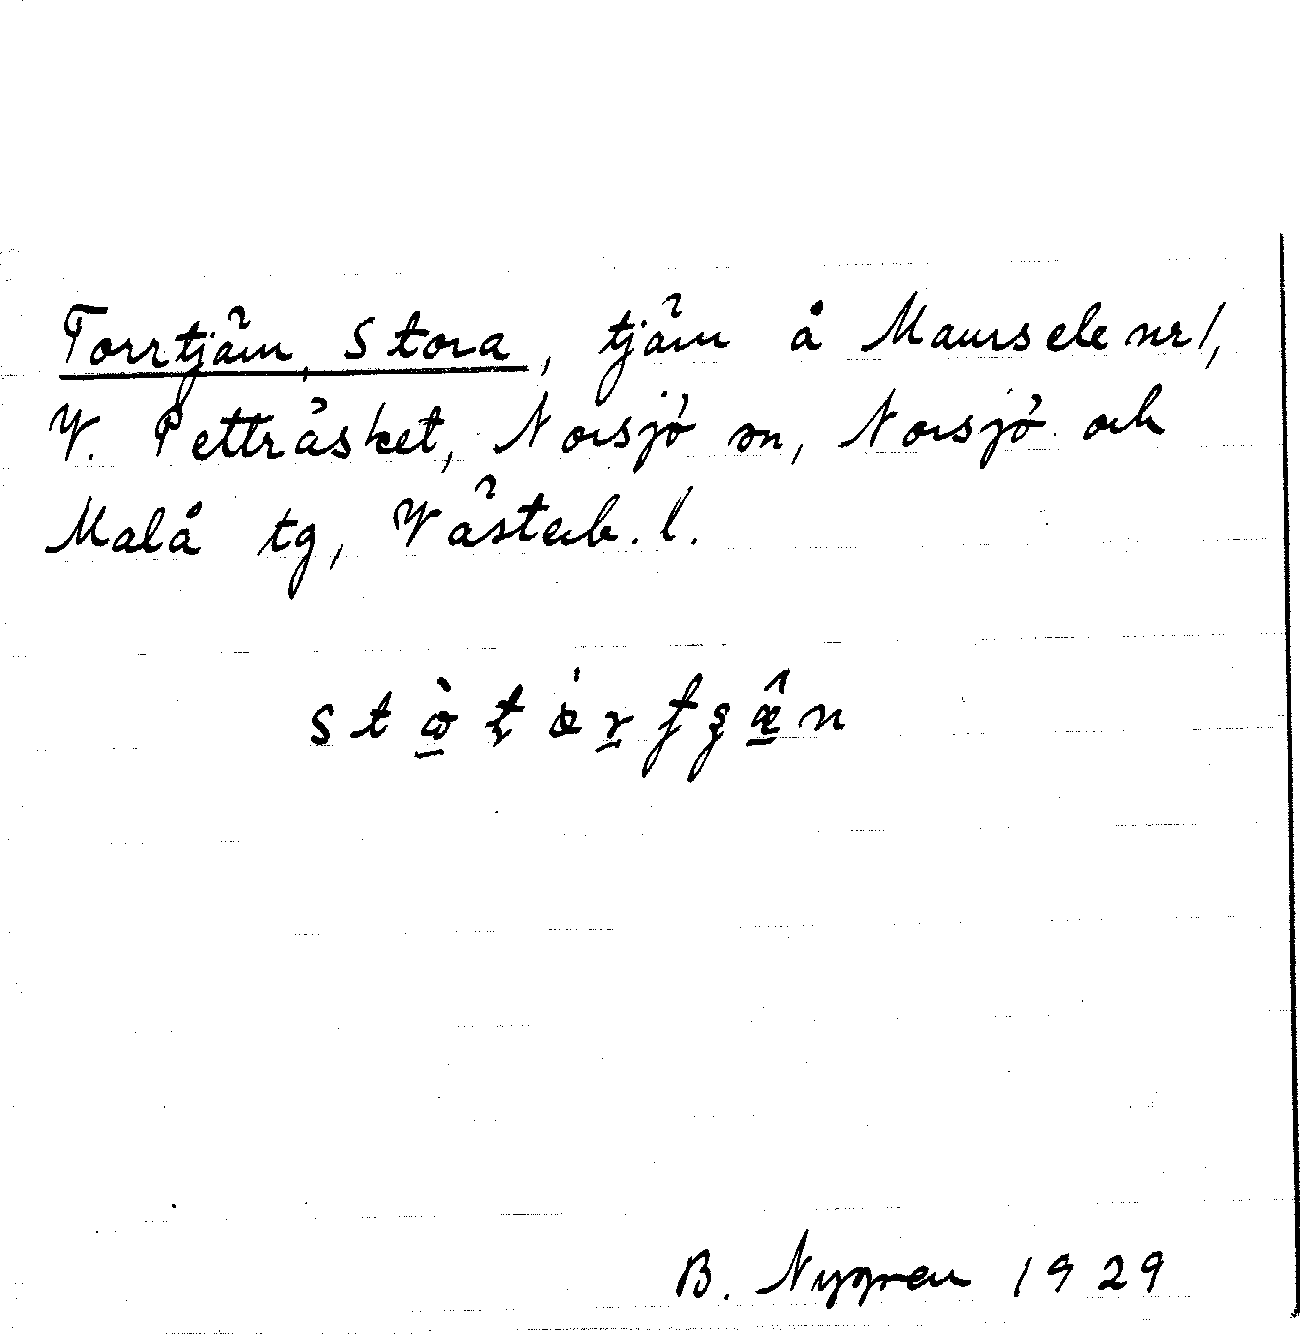 Torrtjärn, Stora, tjärn å Maursele nr 1,
V. Petträsket, Norsjö sn, Norsjö och
Malå tg, Västerb. l.
B. Nygren 1929